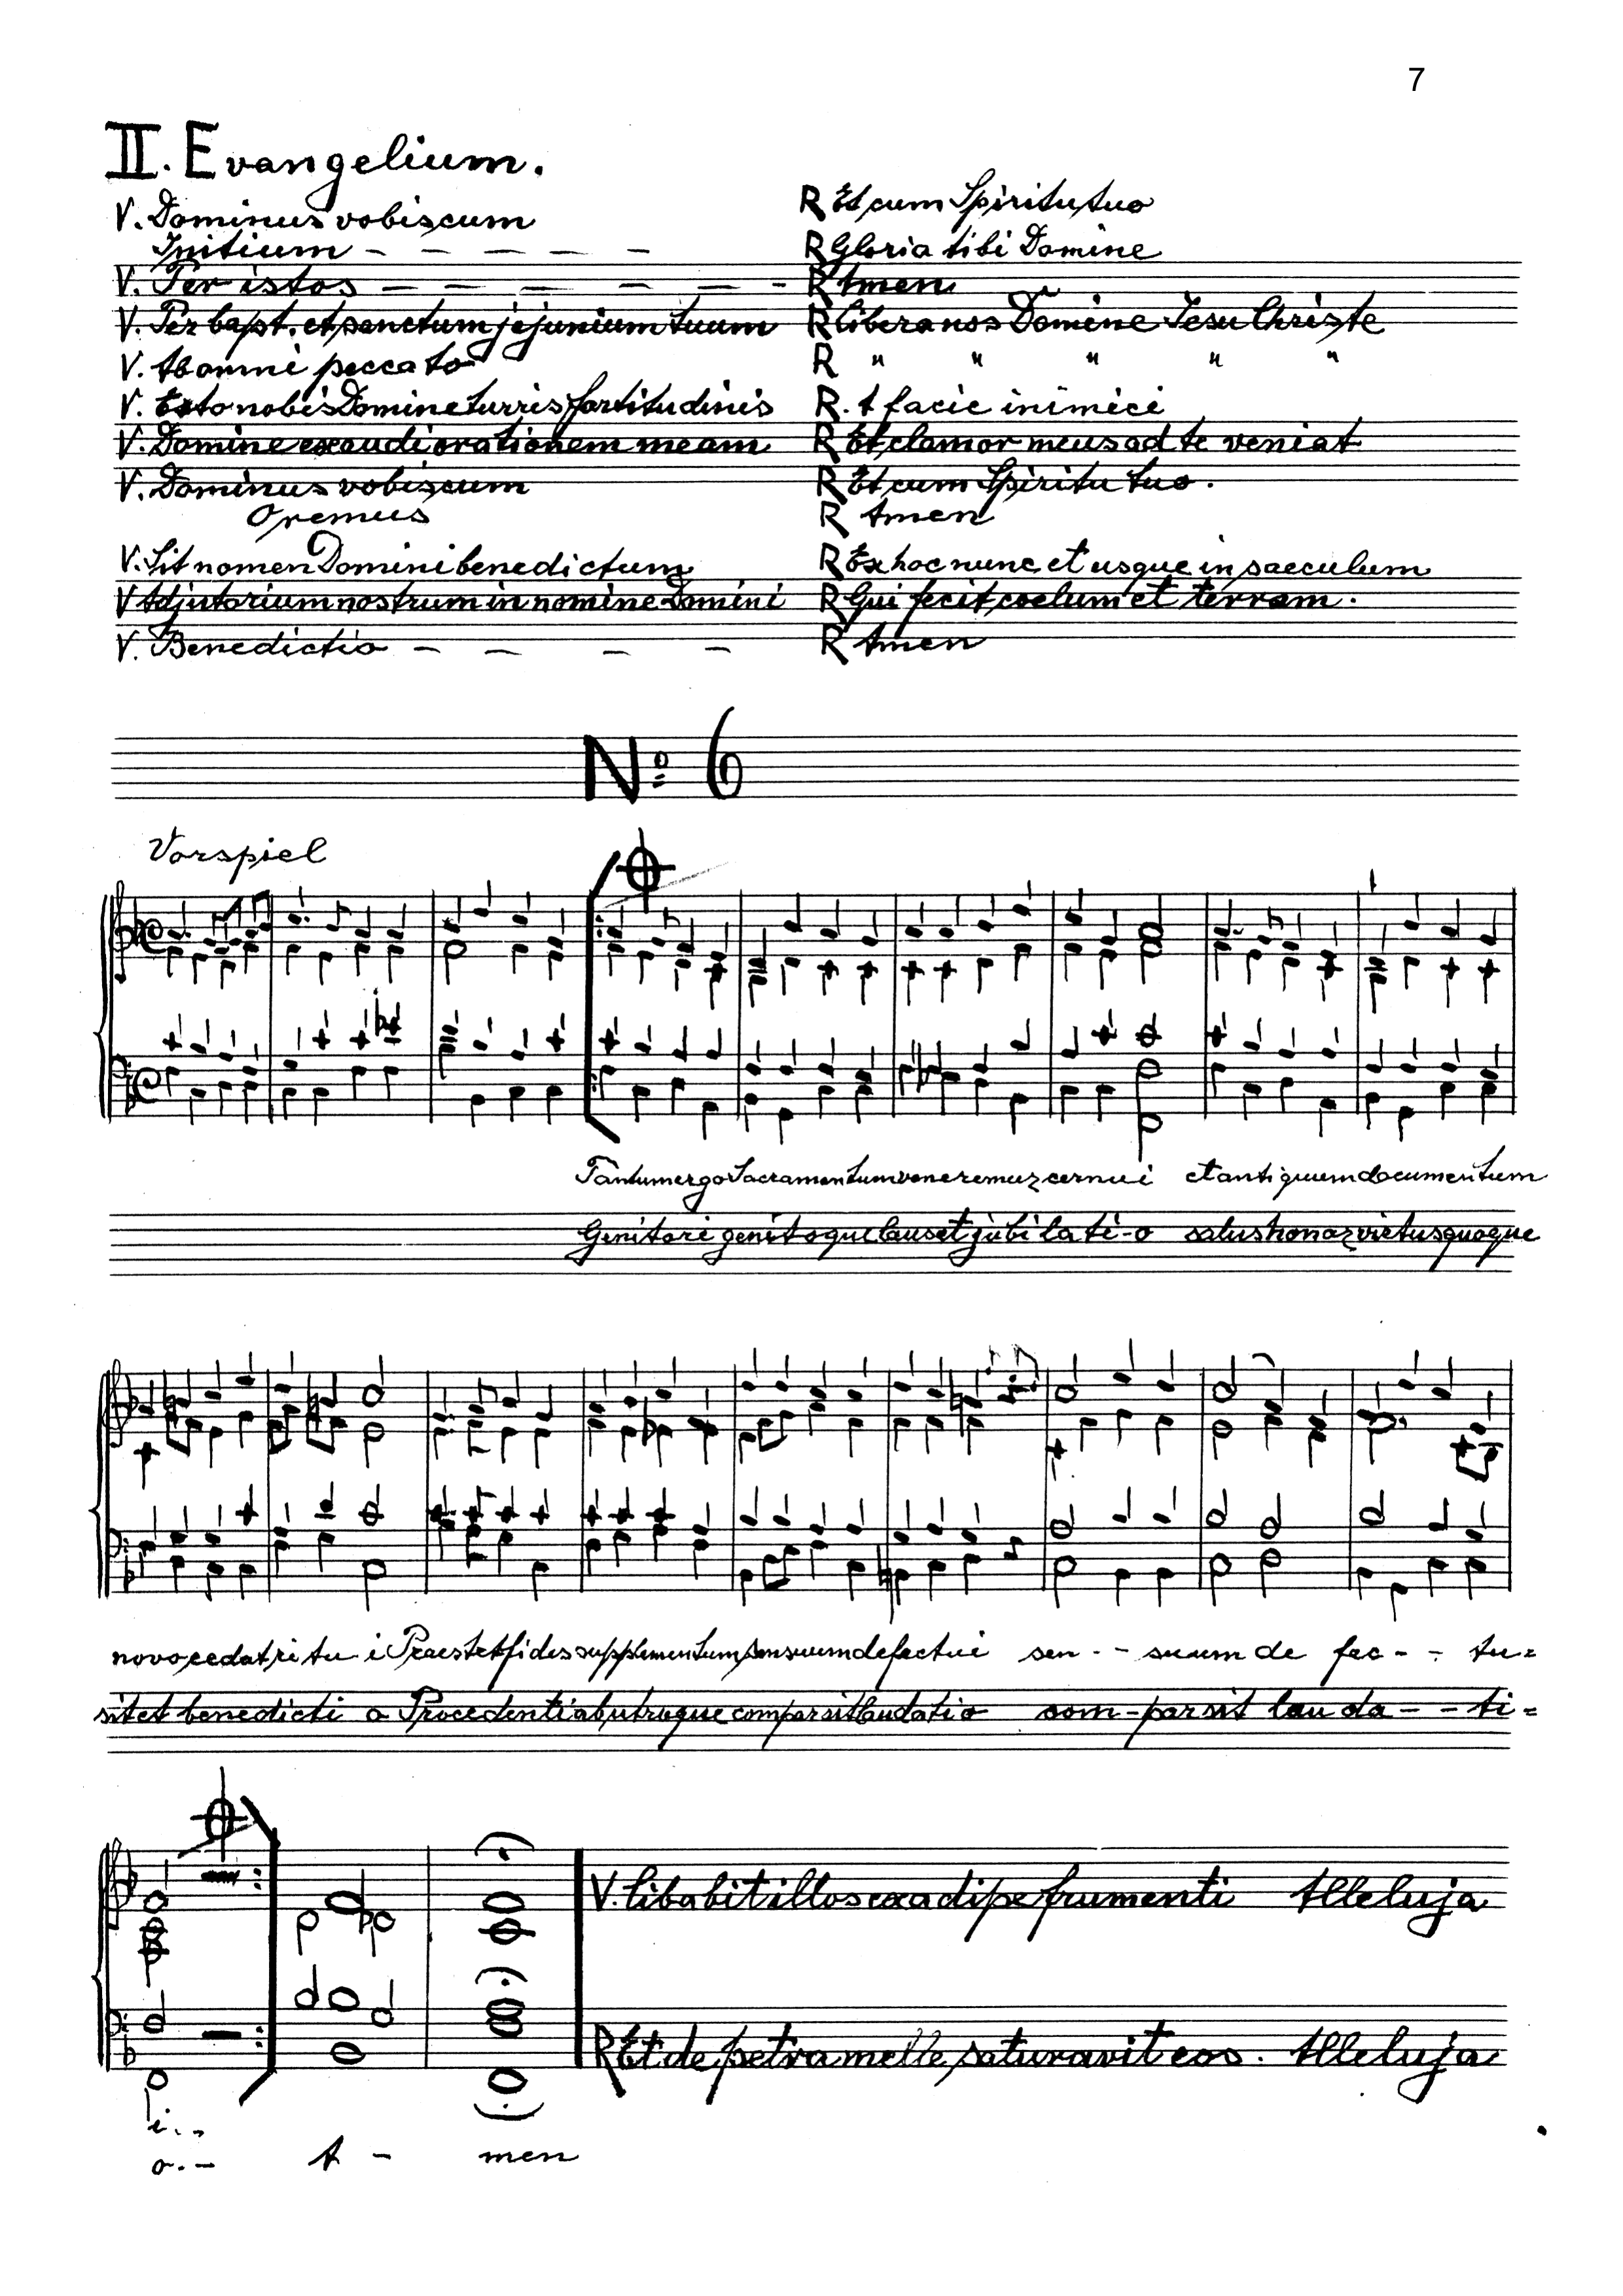 7
II. Evangelium.
V. Dominus vobiscum R Et cum Spiritu tuo
Initium - - - - - R Gloria tibi Domine
V. Per istos - - - - - - R Amen
V. Per bapt. et sanctum jejunium tuum R Libera nos Domine Jesu Christe
V. Ab omni peccato R " " " " "
V. Esto nobis Domine turris fortitudinis R. A facie inimici
V. Domine exaudi orationem meam R Et clamor meus ad te veniat
V. Dominus vobiscum R Et cum Spiritu tuo.
Oremus R Amen
V. Sit nomen Domini benedictum R Ex hoc nunc et usque in saeculum
V Adjutorium nostrum in nomine Domini R Qui fecit coelum et terram.
V. Benedictio - - - - R Amen
No 6
Vorspiel
Tantum ergo Sacramentum veneremur cernui et antiquum documentum
Genitori genitoque laus et jubilati-o salus honor virtus quoque
novo cedat ritu i Praestet fides supplementum sensuum defectui sen - - suum de fec - - tu=
sit et benedicti o Procedenti ab utroque compar sit laudatio com-par sit lau da - - ti=
V. Cibabit illos ex adipe frumenti Alleluja
R Et de petra melle saturavit eos. Alleluja
i. -
o. - A - men